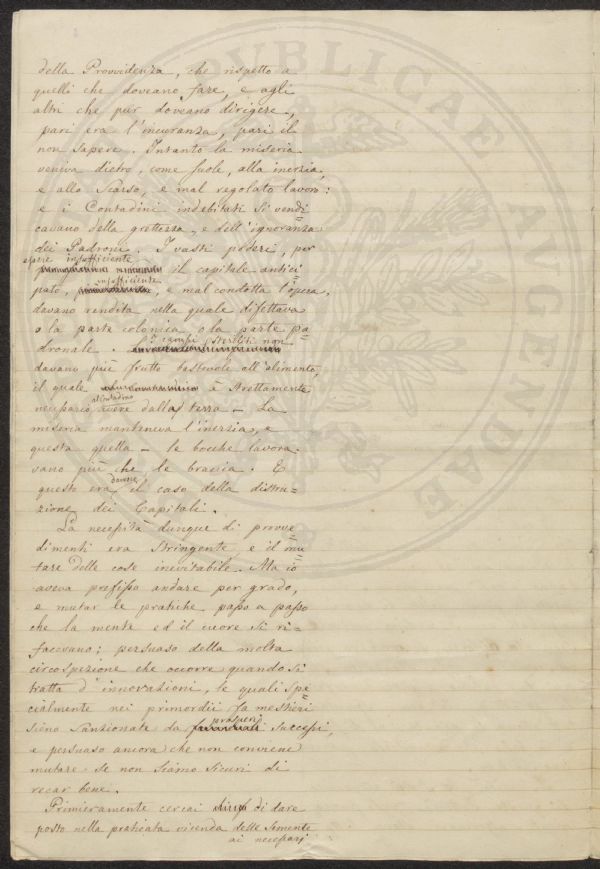 della Provvidenza, che rispetto a
quelli che doveano fare, e agli
altri che pur doveano dirigere,
pari era l'incuranza, pari il
non sapere. Intanto la miseria
veniva dietro, come suole, alla inerzia,
e allo scarso, e mal regolato lavoro:
e i Contadini indebitati si vendi=
cavano della grettezza, e dell'ignoranza
dei Padroni. I vasti poderi, per
essere insufficiente
il capitale antici=
insufficiente
pato, e mal condotta l'opera,
davano rendita nella quale difettava
o la parte colonica, o la parte pa=
I campi steriliti non
dronale.
davano più frutto bastevole all'alimento,
il quale è strettamente
al Contadino
necessario avere dalla terra – La
miseria manteneva l'inerzia, e
questa quella – le bocche lavora=
vano più che le braccia. E
questo era il caso della distru=
zione dei Capitali.
La necessità dunque di provve=
dimenti era stringente, e il mu=
tare delle cose inevitabile. Ma io
aveva prefisso andare per grado,
e mutar le pratiche passo a passo
che la mente ed il cuore si ri=
facevano; persuaso della molta
circospezione che occorre quando si
tratta d'innovazioni, le quali spe=
cialmente nei primordii fa mestieri
prosperi
sieno sanzionate da successi,
e persuaso ancora che non conviene
mutare se non siamo sicuri di
recar bene.
Primieramente cercai di dare
posto nella praticata vicenda delle sementi
ai necessarj
PUBLICAE
AGENDAE